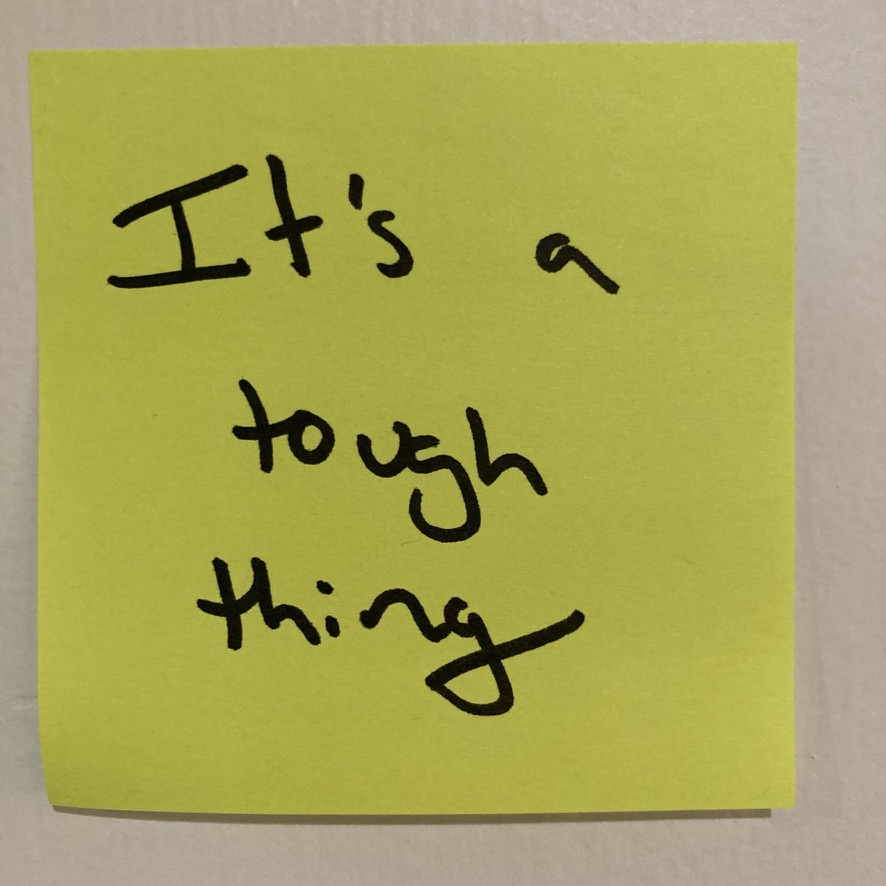 It's a
tough
thing